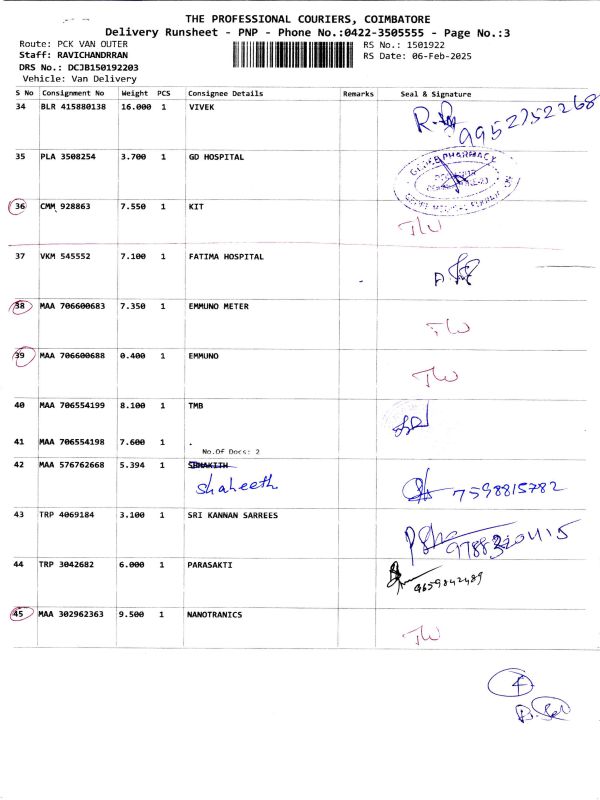 THE PROFESSIONAL COURIERS, COIMBATORE
Delivery Runsheet - PNP - Phone No.:0422-3505555 - Page No.:3
Route: PCK VAN OUTER
RS No.: 1501922
Staff: RAVICHANDRRAN
RS Date: 06-Feb-2025
DRS No.: DCJB150192203
Vehicle: Van Delivery
S No Consignment No Weight PCS Consignee Details Remarks Seal & Signature
34 BLR 415880138 16.000 1 VIVEK 9952752268
35 PLA 3508254 3.700 1 GD HOSPITAL PHARMACY
36 CMM 928863 7.550 1 KIT TW
37 VKM 545552 7.100 1 FATIMA HOSPITAL
38 MAA 706600683 7.350 1 EMMUNO METER TW
39 MAA 706600688 0.400 1 EMMUNO TW
40 MAA 706554199 8.100 1 TMB
41 MAA 706554198 7.600 1 .
No.Of Docs: 2
42 MAA 576762668 5.394 1 SBHAKITH
shaheeth 7598815782
43 TRP 4069184 3.100 1 SRI KANNAN SARREES
44 TRP 3042682 6.000 1 PARASAKTI 9659842489
45 MAA 302962363 9.500 1 NANOTRANICS TW
4